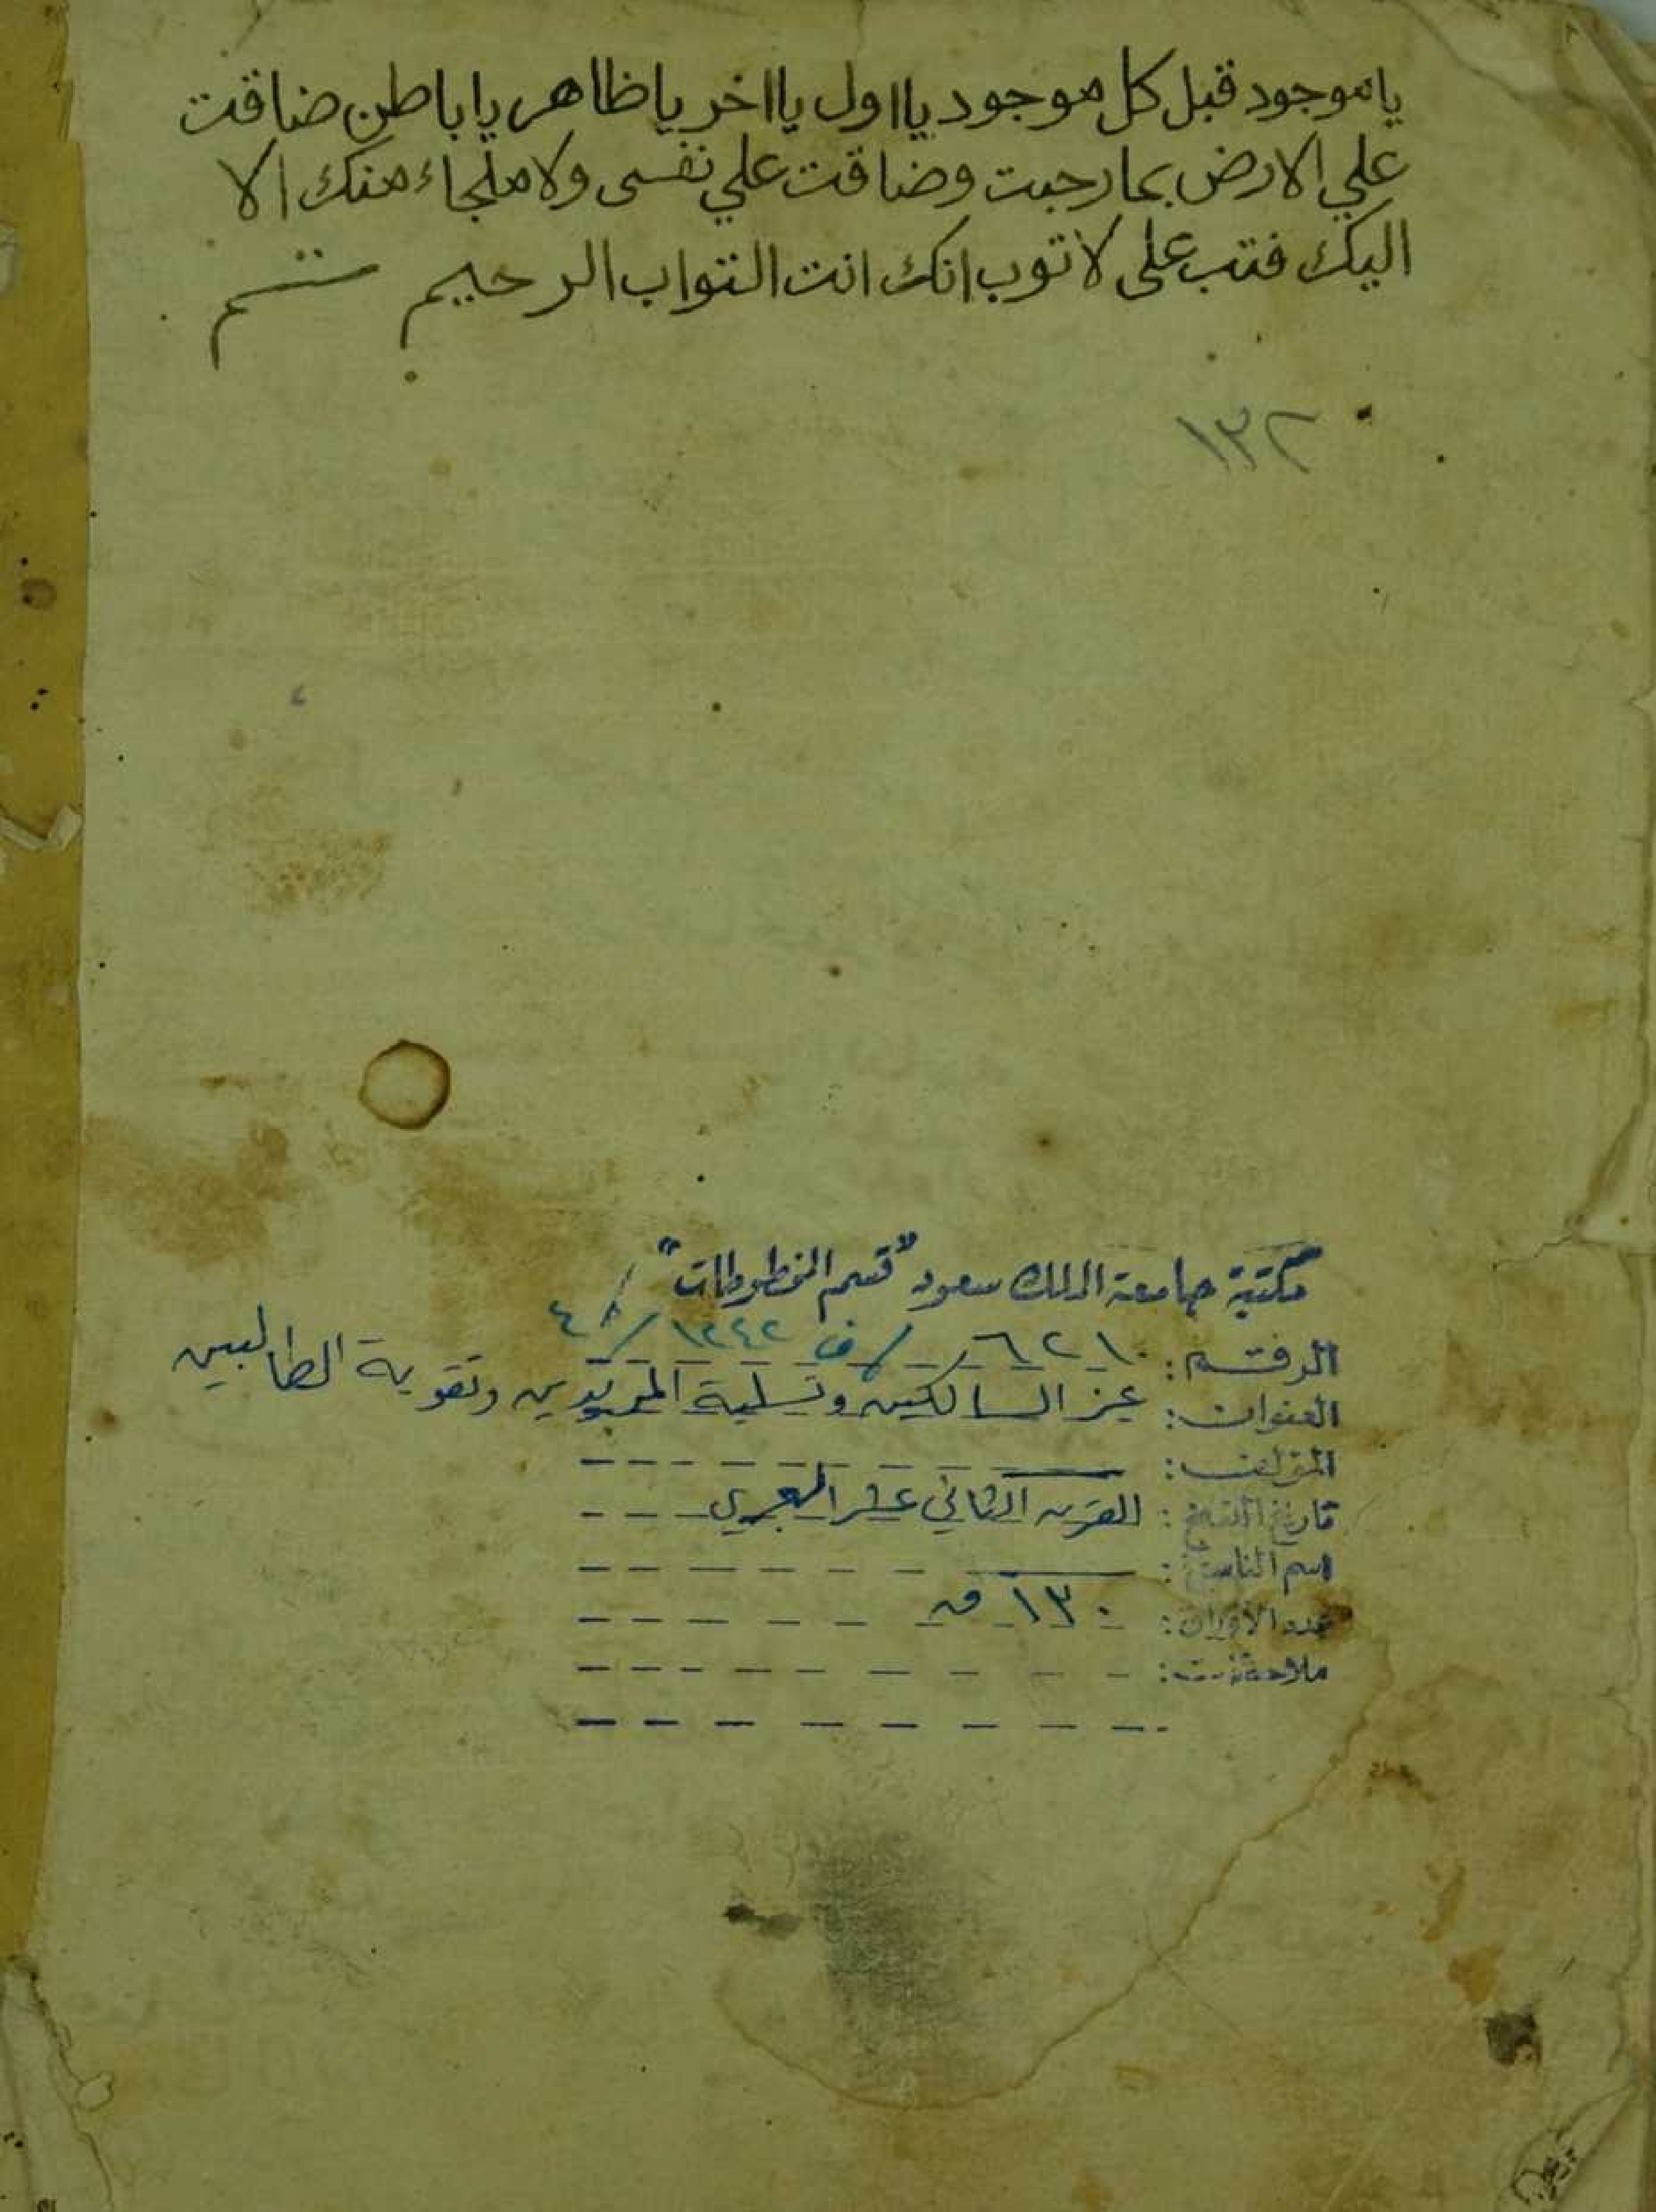 ياموجود قبل كل موجود يااول يااخر ياظاهر ياباطن ضاقت
علي الارض بمارحبت وضاقت علي نفسى ولاملجاء منك الا
اليك فتب على لاتوب انك انت التواب الرحيم تم
١٣٢
مكتبة جامعة الملك سعود "قسم المخطوطات"
الرقم: ٦٢١٠ / ف ١٢٤٢ / ٤
العنوان: عز السالكين وتسلية المريدين وتقوية الطالبين
المؤلف:
تاريخ النسخ: القرن الثاني عشر الهجري
اسم الناسخ:
عدد الأوراق: ١٣٠ ق
ملاحظات: